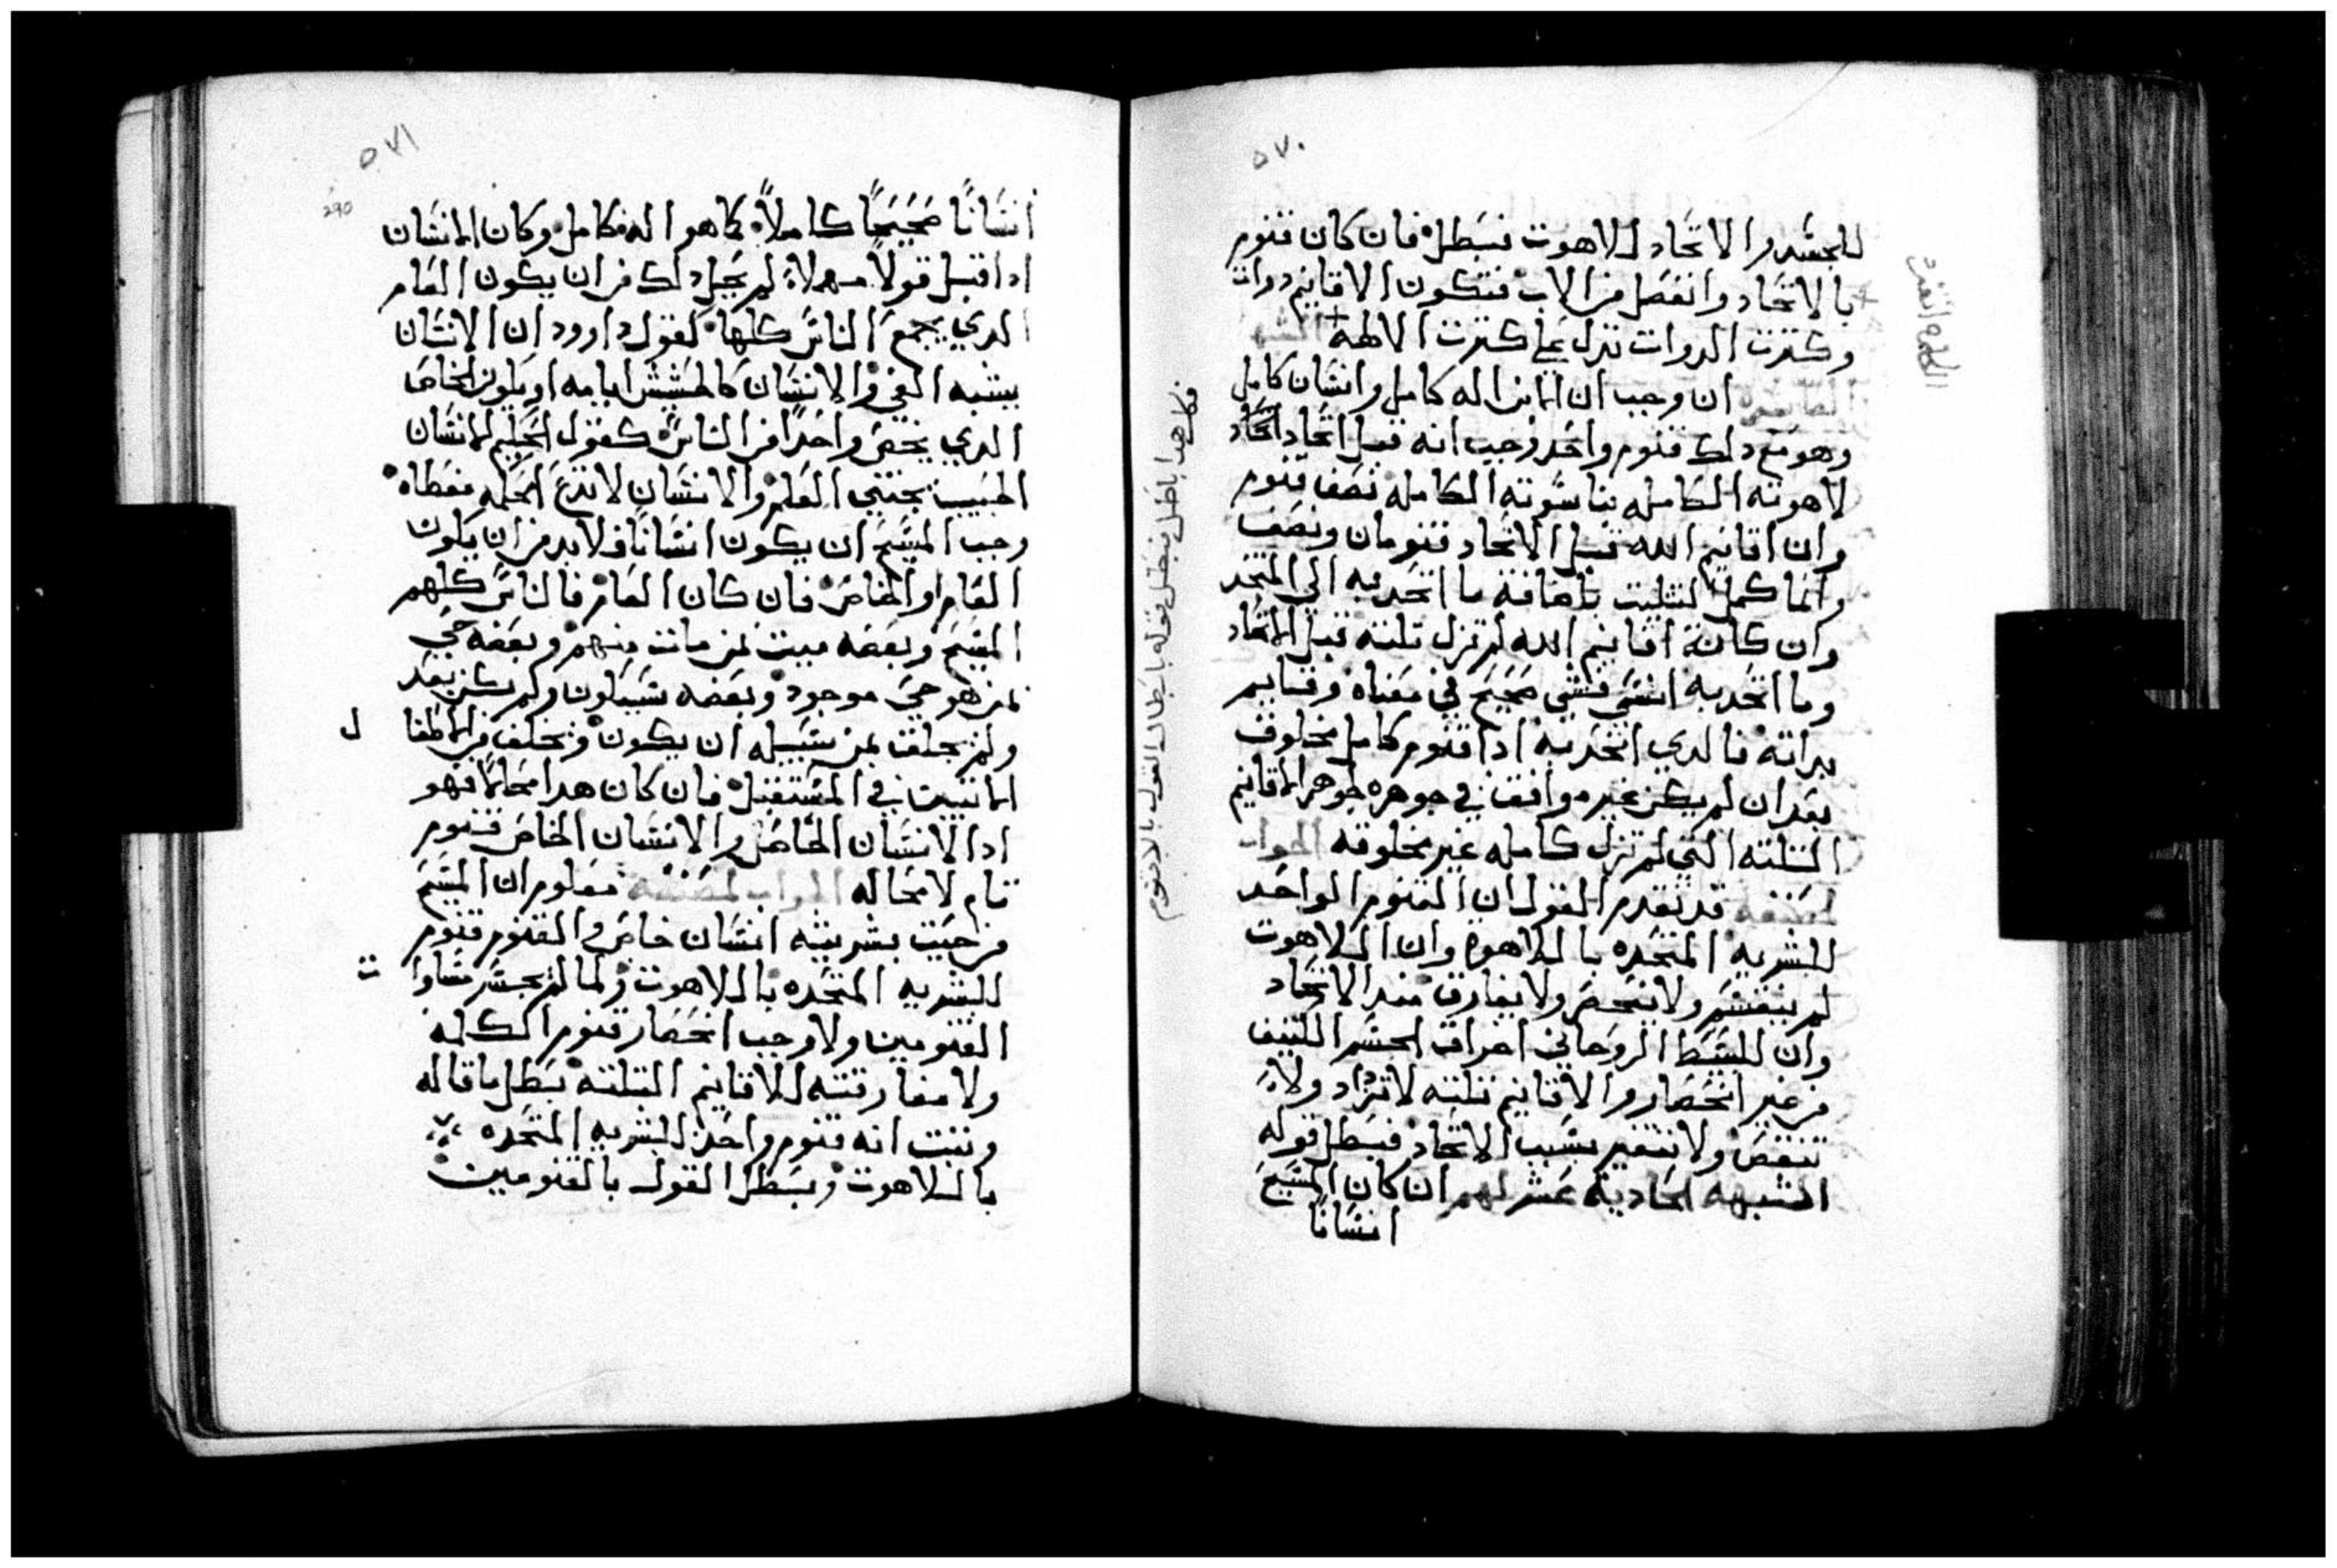 ٥٧٠
للجسد والاتحاد للاهوت فبطل فان كان قنوم
بالاتحاد وانفصل من الاب فتكون الاقانيم دوات
وكترت الدوات تدل علي كترت الالهة
ان وجب ان الابن اله كامل وانسان كامل
وهو مع دلك قنوم واحد وجب انه قبل اتحاد
لاهوته الكامله بناسوته الكامله نصف قنوم
وان اقانيم الله قبل الاتحاد قنومان ونصف
وانما كمل التتليت باضافة ما اتحد به الي المتحد
وان كانة اقانيم الله لم تزل تلته قبل الاتحاد
وما اتحد به انسي فشي صحيح في معناه وقايم
بداته فالدي اتحد به ادا قنوم كامل مخلوق
بعد ان لم يكن غير موافق في جوهره لجوهر الاقانيم
التلته التي لم تزل كامله غير مخلوقه الجواب
لمصنفه قد تقدم القول ان القنوم الواحد
للبشريه المتحده باللاهوة وان اللاهوت
لم ينقسم ولا ينحصر ولا يفارق مند الاتحاد
وان للبسيط الروحاني اخراق الجسم الكتيف
من غير انحصار والاقانيم تلته لا تزاد ولا
تنقص ولا تتغير بسبب الاتحاد فبطل قوله
الشبهه الحادية عشر لهم ان كان المسيح
انسانا
فكل هدا باطل فبطل قوله بابطال القول بالاقنوم
٥٧١
290
انسانا صحيحا كاملا كما هو اله كامل وكان الانسان
ادا قيل قولا مهملا لم يخل دلك من ان يكون العام
الدي يجمع الناس كلها كقول داوود ان الانسان
يشبه الفي والانسان كالحشيش ايامه او يكون الخاص
الدي يخص واحدا من الناس كقول الحكيم الانسان
الحبيب يجتني العلم والانسان لا تدع الحكمه معطاه
وجب المسيح ان يكون انسانا فلا بد من ان يكون
العام او الخاص فان كان العام فالناس كلهم
المسيح وبعضه ميت لمن مات منهم وبعضه حي
لمن هو حي موجود وبعضه سيكون ولم يكن بعد
ولم يخلق لمن سبيله ان يكون ويخلف من الاطفا
ل
الاتيين في المستقبل فان كان هدا محالا فهو
ادا الانسان الخاص والانسان الخاص قنوم
تام لا محاله الجواب لمصنفه معلوم ان المسيح
من حيت بشريته انسان خاص والقنوم قنوم
للبشريه المتحده باللاهوت ولما لم يجسر مساوا
ت
القنومين ولا وجب انحصار قنوم الكلمه
ولا مفارقته للاقانيم التلته بطل ما قاله
وتبت انه قنوم واحد للبشريه المتحده
باللاهوت وبطل القول بالقنومين